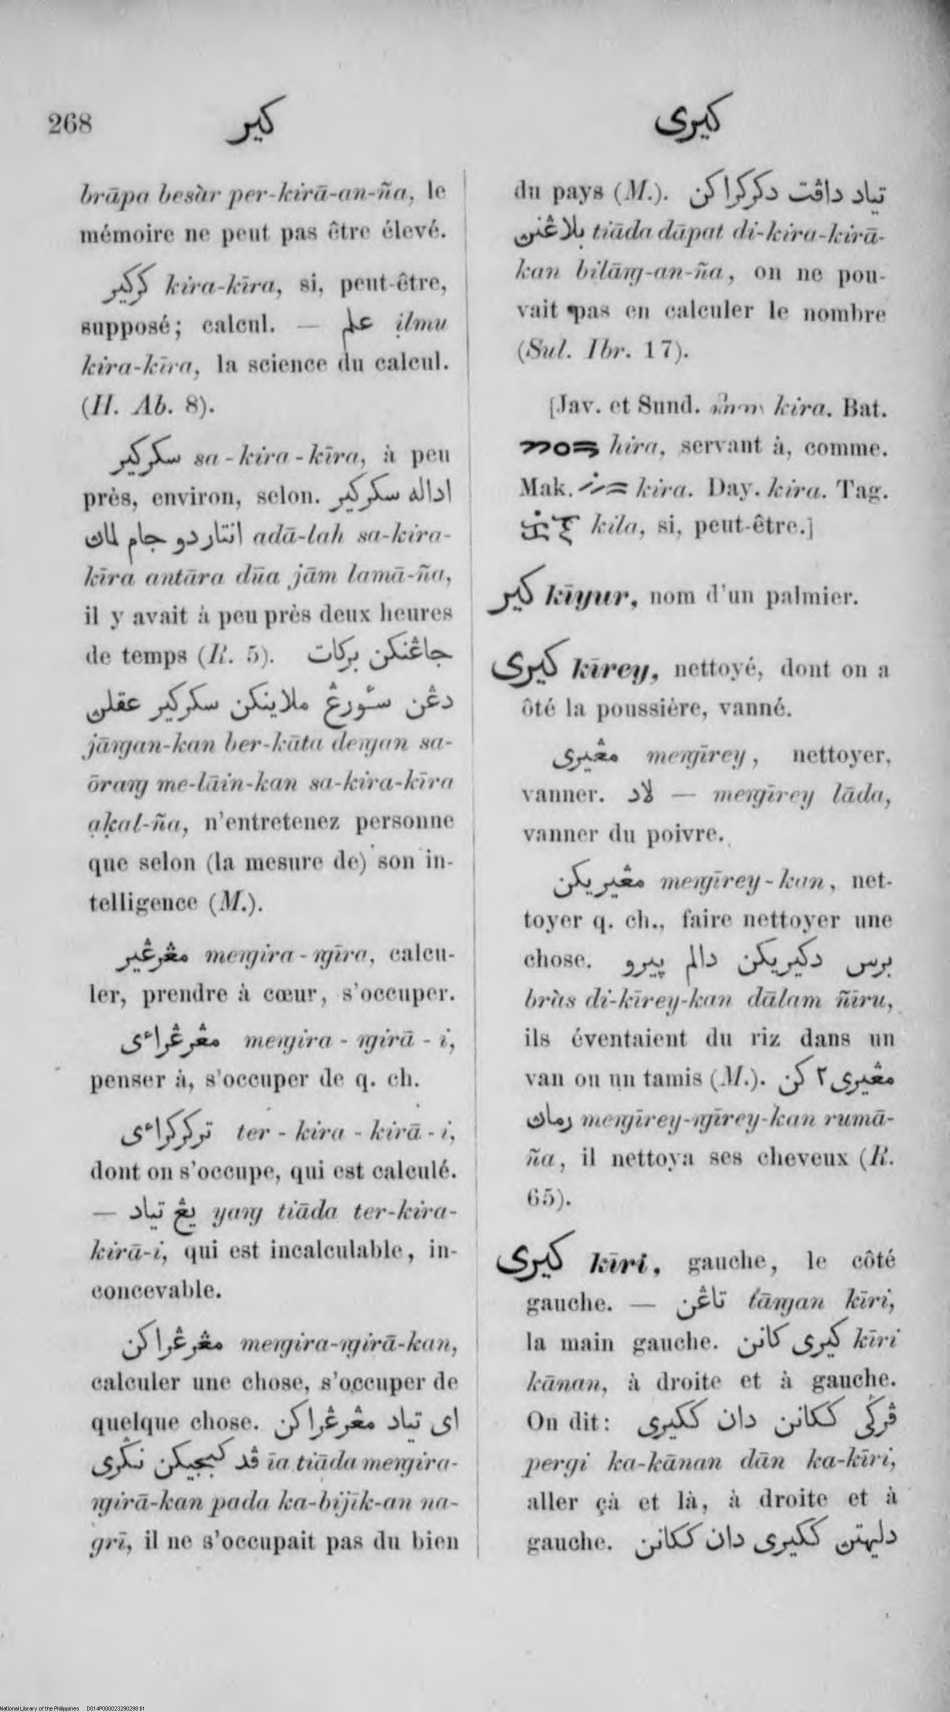 268
كير
كيرى
brāpa besàr per-kirā-an-ña, le
mémoire ne peut pas être élevé.
كركير kira-kīra, si, peut-être,
supposé; calcul. — علم ịlmu
kira-kīra, la science du calcul.
(H. Ab. 8).
سكركير sa-kira-kīra, à peu
près, environ, selon. اداله سكركير
انتار دو جام لمان adā-lah sa-kira-
kīra antāra dūa jām lamā-ña,
il y avait à peu près deux heures
de temps (R. 5). جاڠنكن بركات
دڠن سٔورڠ ملاينكن سكركير عقلن
jāṅgan-kan ber-kāta deṅgan sa-
ōraṅg me-lāin-kan sa-kira-kīra
ạḳal-ña, n'entretenez personne
que selon (la mesure de) son in-
telligence (M.).
مڠرڠير meṅgira-ṅgīra, calcu-
ler, prendre à cœur, s'occuper.
مڠرڠراءى meṅgira-ṅgirā-i,
penser à, s'occuper de q. ch.
تركركراءى ter-kira-kirā-i,
dont on s'occupe, qui est calculé.
— يڠ تياد yaṅg tiāda ter-kira-
kirā-i, qui est incalculable, in-
concevable.
مڠرڠراكن meṅgira-ṅgirā-kan,
calculer une chose, s'occuper de
quelque chose. اى تياد مڠرڠراكن
ڤد كبجيكن نڬرى īa tiāda meṅgira-
ṅgirā-kan pada ka-bijīk-an na-
grī, il ne s'occupait pas du bien
du pays (M.). تياد داڤت دكركراكن
بلاڠنن tiāda dāpat di-kira-kirā-
kan bilāṅg-an-ña, on ne pou-
vait pas en calculer le nombre
(Sul. Ibr. 17).
[Jav. et Sund. kira. Bat.
hira, servant à, comme.
Mak. kira. Day. kira. Tag.
kila, si, peut-être.]
كير kīyur, nom d'un palmier.
كيرى kīrey, nettoyé, dont on a
ôté la poussière, vanné.
مڠيرى meṅgīrey, nettoyer,
vanner. لاد — meṅgīrey lāda,
vanner du poivre.
مڠيريكن meṅgīrey-kan, net-
toyer q. ch., faire nettoyer une
chose. برس دكيريكن دالم ڽيرو
bràs di-kīrey-kan dālam ñīru,
ils éventaient du riz dans un
van ou un tamis (M.). مڠيرى ٢ كن
رمان meṅgīrey-ṅgīrey-kan rumā-
ña, il nettoya ses cheveux (R.
65).
كيرى kīri, gauche, le côté
gauche. — تاڠن tāṅgan kīri,
la main gauche. كيرى كانن kīri
kānan, à droite et à gauche.
On dit: ڤركى ككانن دان ككيرى
pergi ka-kānan dān ka-kīri,
aller çà et là, à droite et à
gauche. دليهتن ككيرى دان ككانن
National Library of the Philippines